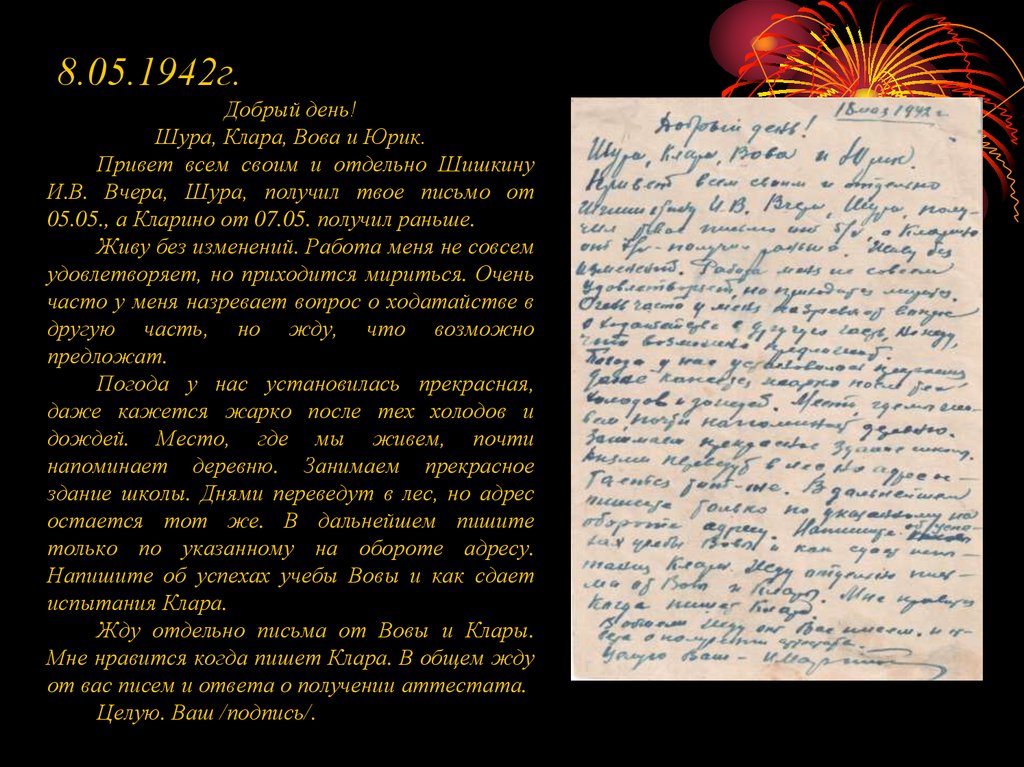 8.05.1942г.
Добрый день!
Шура, Клара, Вова и Юрик.
Привет всем своим и отдельно Шишкину
И.В. Вчера, Шура, получил твое письмо от
05.05., а Кларино от 07.05. получил раньше.
Живу без изменений. Работа меня не совсем
удовлетворяет, но приходится мириться. Очень
часто у меня назревает вопрос о ходатайстве в
другую часть, но жду, что возможно
предложат.
Погода у нас установилась прекрасная,
даже кажется жарко после тех холодов и
дождей. Место, где мы живем, почти
напоминает деревню. Занимаем прекрасное
здание школы. Днями переведут в лес, но адрес
остается тот же. В дальнейшем пишите
только по указанному на обороте адресу.
Напишите об успехах учебы Вовы и как сдает
испытания Клара.
Жду отдельно письма от Вовы и Клары.
Мне нравится когда пишет Клара. В общем жду
от вас писем и ответа о получении аттестата.
Целую. Ваш /подпись/.
18 мая 1942 г
Добрый день!
Шура, Клара, Вова и Юрик.
Привет всем своим и отдельно
Шишкину И.В. Вчера, Шура, полу-
чил твое письмо от 5/V, а Кларино
от 7/V – получил раньше. Живу без
изменений. Работа меня не совсем
удовлетворяет, но приходится мириться.
Очень часто у меня назревает вопрос
о ходатайстве в другую часть, но жду,
что возможно предложат.
Погода у нас установилась прекрасная
даже кажется жарко после тех
холодов и дождей. Место, где мы жи-
вем, почти напоминает деревню.
Занимаем прекрасное здание школы.
Днями переведут в лес, но адрес ос-
тается тот-же. В дальнейшем
пишите только по указанному на
обороте адресу. Напишите об успе-
хах учебы Вовы и как сдает испы-
тания Клара. Жду отдельно пись-
ма от Вовы и Клары. Мне нравится
когда пишет Клара.
В общем жду от Вас писем и от-
вета о получении аттестата.
Целую Ваш –